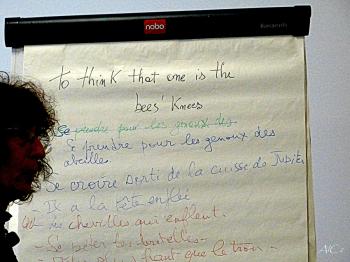 nobo
To think that one is the
bees' knees
Se prendre pour les genoux des
Se prendre pour les genoux des
abeilles.
Se croire sorti de la cuisse de Jupiter
Il a la tête enflée
les chevilles qui enflent.
- Se péter les bretelles.
plus haut que le tron.